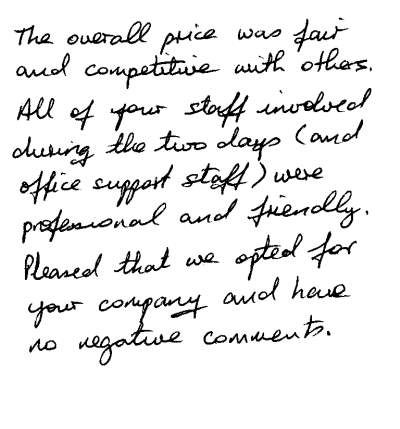 The overall price was fair
and competitive with others.
All of your staff involved
during the two days (and
office support staff) were
professional and friendly.
Pleased that we opted for
your company and have
no negative comments.